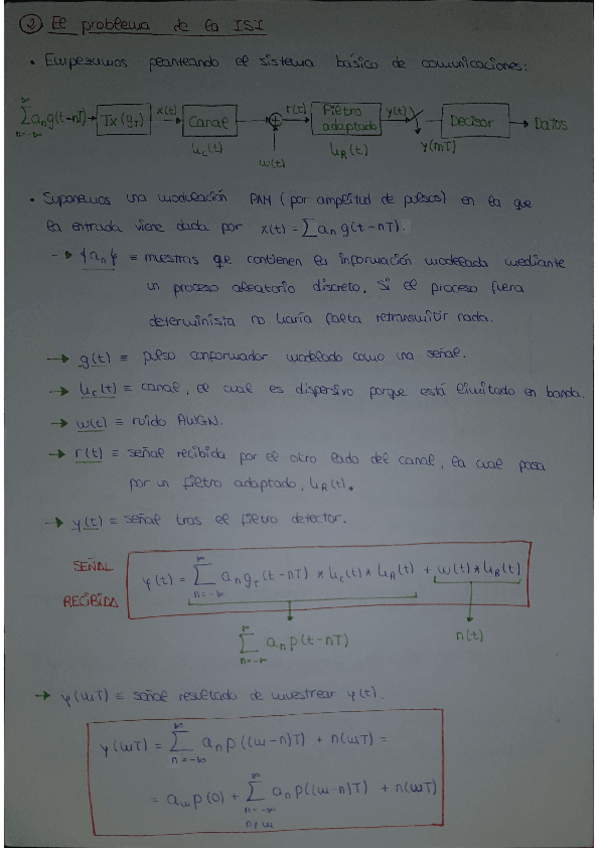 ② El problema de la ISI
• Empezamos planteando el sistema básico de comunicaciones:
∑ₙ₌₋∞^∞ aₙg(t-nT) → Tx(g_T) x(t) → Canal h_c(t) → ⊕ w(t) r(t) → Filtro adaptado h_R(t) y(t) → y(mT) → Decisor → Datos
• Suponemos una modulación PAM (por amplitud de pulsos) en la que
la entrada viene dada por x(t) = ∑ aₙ g(t-nT).
→ {aₙ} ≡ muestras que contienen la información modelada mediante
un proceso aleatorio discreto. Si el proceso fuera
determinista no haría falta retransmitir nada.
→ g(t) ≡ pulso conformador modelado como una señal.
→ h_c(t) ≡ canal, el cual es dispersivo porque está limitado en banda.
→ w(t) ≡ ruido AWGN.
→ r(t) ≡ señal recibida por el otro lado del canal, la cual pasa
por un filtro adaptado, h_R(t).
→ y(t) ≡ señal tras el filtro detector.
SEÑAL RECIBIDA
y(t) = ∑ₙ₌₋∞^∞ aₙ g_T(t-nT) * h_c(t) * h_R(t) + w(t) * h_R(t)
∑ₙ₌₋∞^∞ aₙ p(t-nT) n(t)
→ y(mT) ≡ señal resultado de muestrear y(t).
y(mT) = ∑ₙ₌₋∞^∞ aₙ p((m-n)T) + n(mT) =
= aₘ p(0) + ∑ₙ₌₋∞^∞ aₙ p((m-n)T) + n(mT)
n≠m